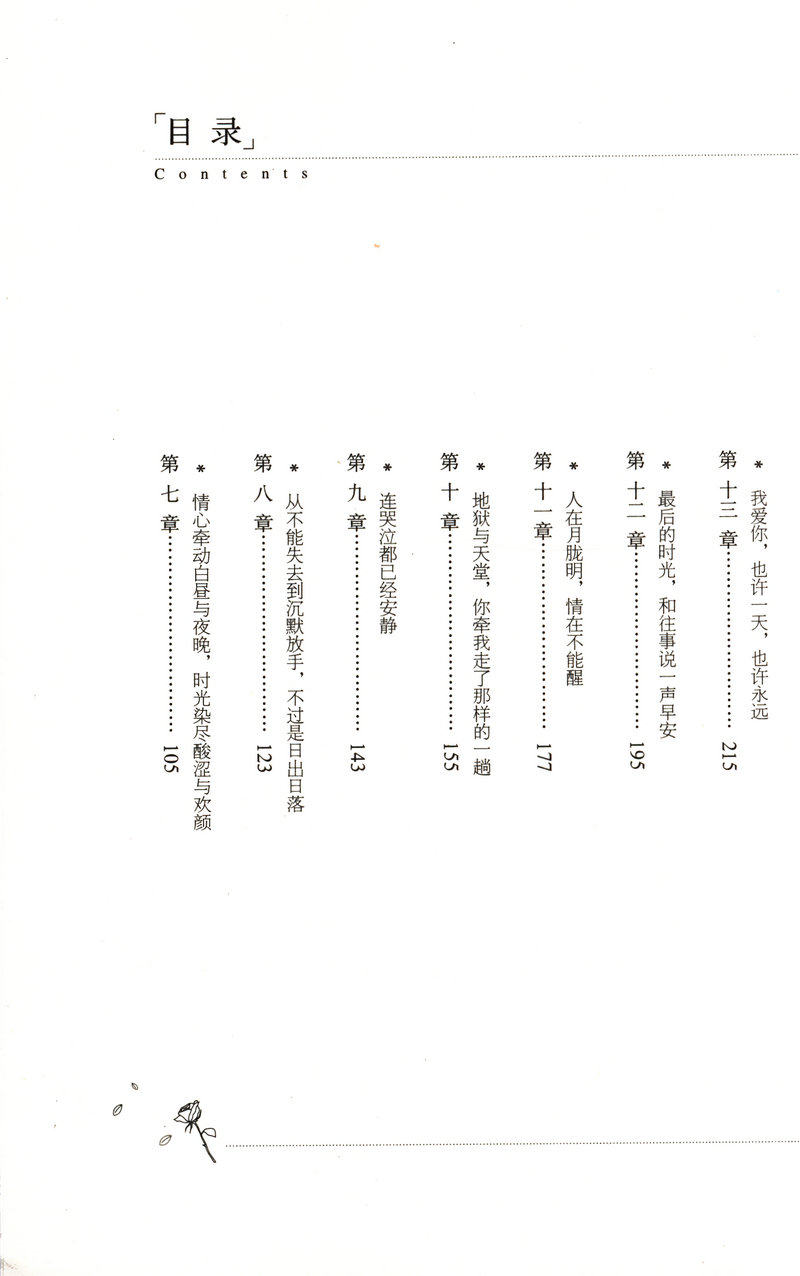 「目录」
Contents
* 情心牵动白昼与夜晚，时光染尽酸涩与欢颜
第七章……………………105
* 从不能失去到沉默放手，不过是日出日落
第八章……………………123
* 连哭泣都已经安静
第九章……………………143
* 地狱与天堂，你牵我走了那样的一趟
第十章……………………155
* 人在月胧明，情在不能醒
第十一章……………………177
* 最后的时光，和往事说一声早安
第十二章……………………195
* 我爱你，也许一天，也许永远
第十三章……………………215